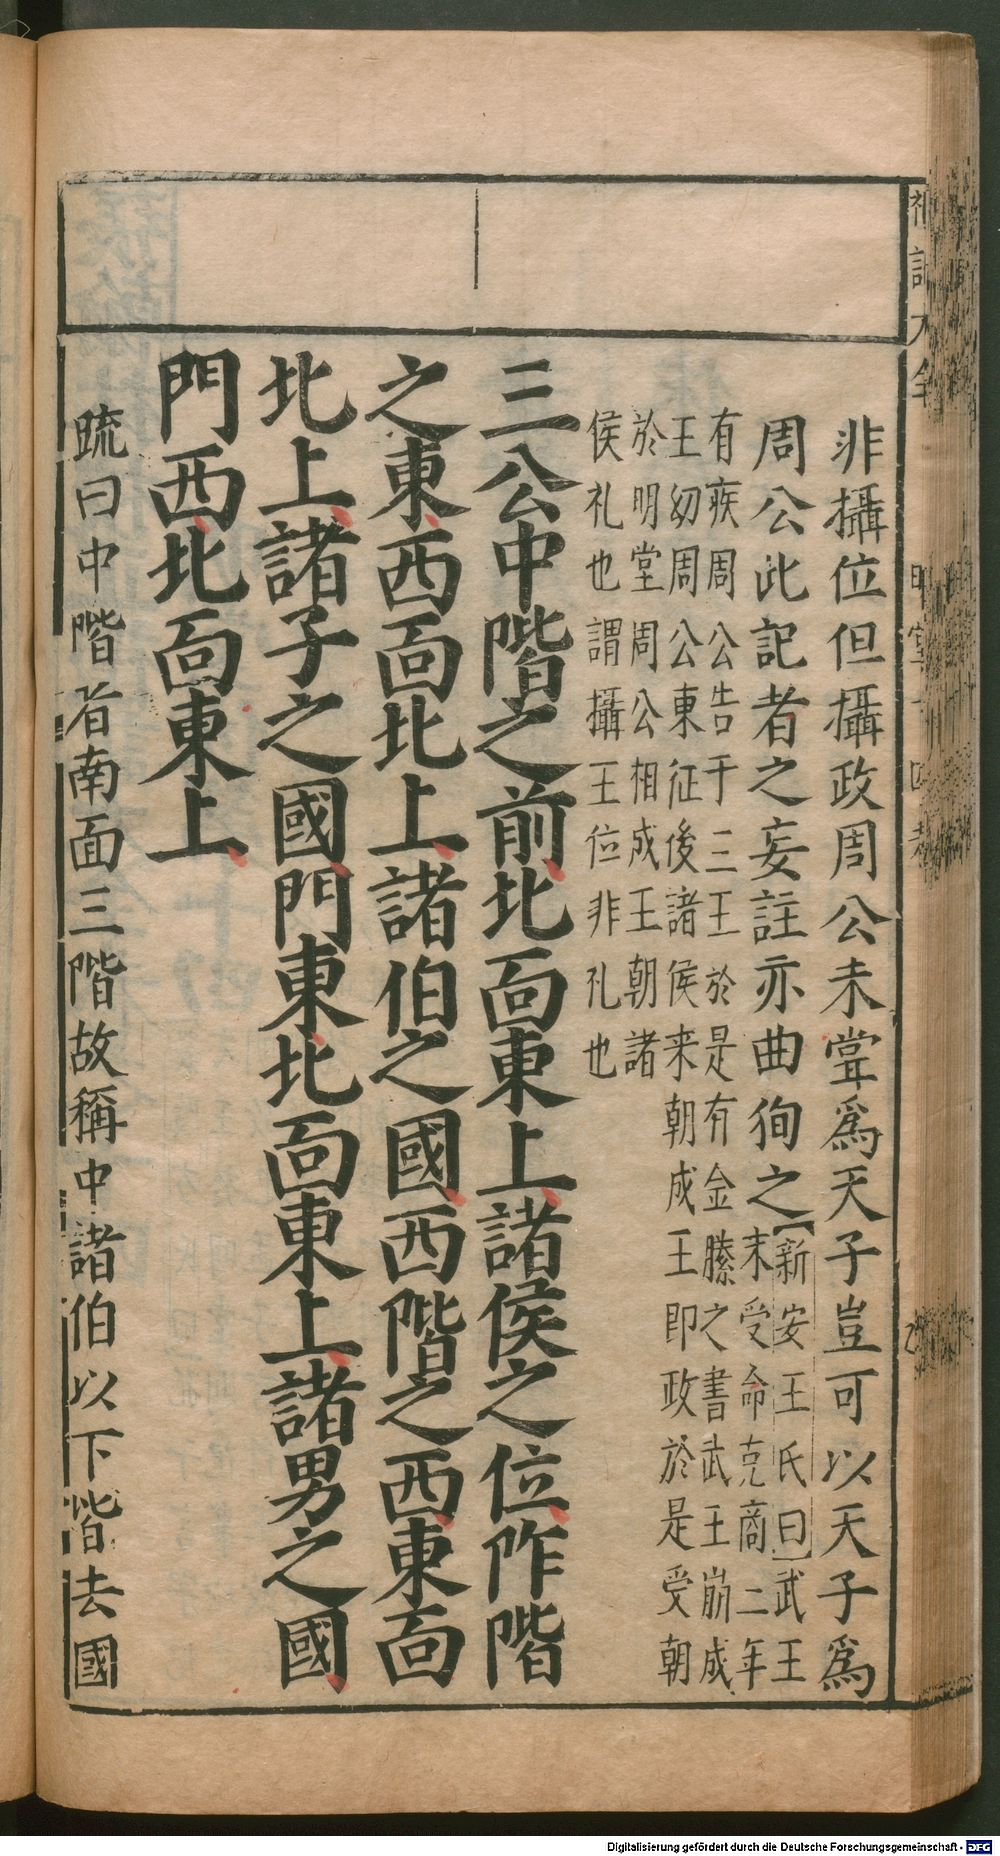 非攝位但攝政周公未甞爲天子豈可以天子爲
周公此記者之妄註亦曲狥之【新安王氏曰】武王
末受命克商二年
有疾周公告于三王於是有金縢之書武王崩成
王幼周公東征後諸侯来朝成王即政於是受朝
於明堂周公相成王朝諸
侯礼也謂攝王位非礼也
三公中階之前北面東上諸侯之位阼階
之東西面北上諸伯之國西階之西東面
北上諸子之國門東北面東上諸男之國
門西北面東上
䟽曰中階者南面三階故稱中諸伯以下皆去國
Digitalisierung gefördert durch die Deutsche Forschungsgemeinschaft - DFG